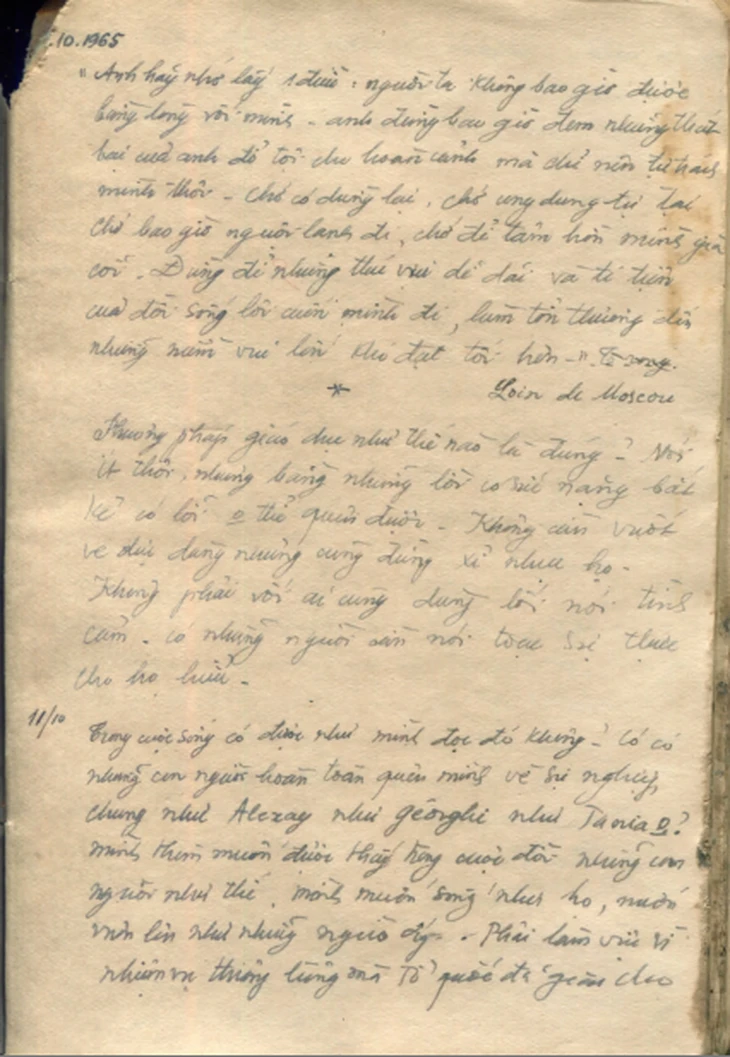 .10.1965
"Anh hãy nhớ lấy 1 điều: người ta không bao giờ được
bằng lòng với mình - anh đừng bao giờ đem những thất
bại của anh đổ tội cho hoàn cảnh mà chỉ nên tự trách
mình thôi - Chớ có dừng lại, chớ ung dung tự tại
chớ bao giờ nguội lạnh đi, chớ để tâm hồn mình già
cỗi. Đừng để những thú vui dễ dãi và ti tiện
của đời sống lôi cuốn mình đi, làm tổn thương đến
những niềm vui lớn khó đạt tới hơn -"
*
Loin de Moscou
Phương pháp giáo dục như thế nào là đúng? Nói
ít thôi, nhưng bằng những lời có sức nặng bắt
kẻ có lỗi o thể quên được - Không cần vuốt
ve dịu dàng nhưng cũng đừng xỉ nhục họ.
Không phải với ai cũng dùng lối nói tình
cảm - có những người cần nói toạc sự thực
cho họ hiểu -
11/10
Trong cuộc sống có được như mình đọc đó không? Có có
những con người hoàn toàn quên mình về sự nghiệp
chung như Alexay như Géorghi như Tania o?
mình thèm muốn được thấy trong cuộc đời những con
người như thế. mình muốn sống như họ, muốn
vươn lên như những người ấy - Phải làm việc vì
nhiệm vụ thiêng liêng mà Tổ quốc đã giao cho